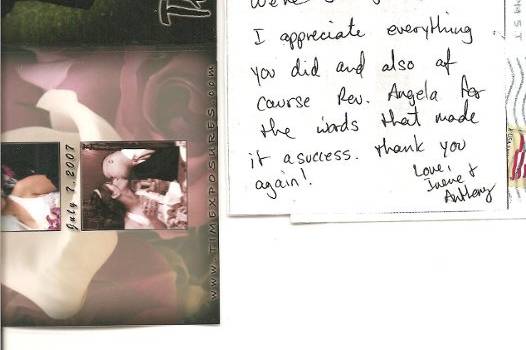 I appreciate everything
you did and also of
course Rev. Angela for
the words that made
it a success. Thank you
again!
Love,
Irene &
Anthony
July 7, 2007
www.TIMEXPOSURES.com